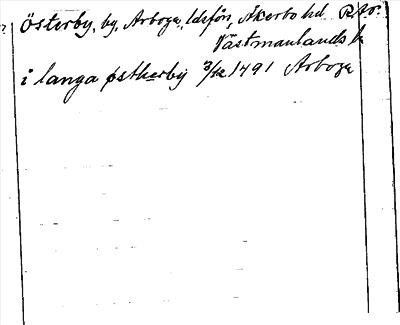 Österby, by, Arboga, ldsfön, Åkerbo hd. R.A.?
Västmanlands l.
i langa østherby 3/12 1491 Arboga